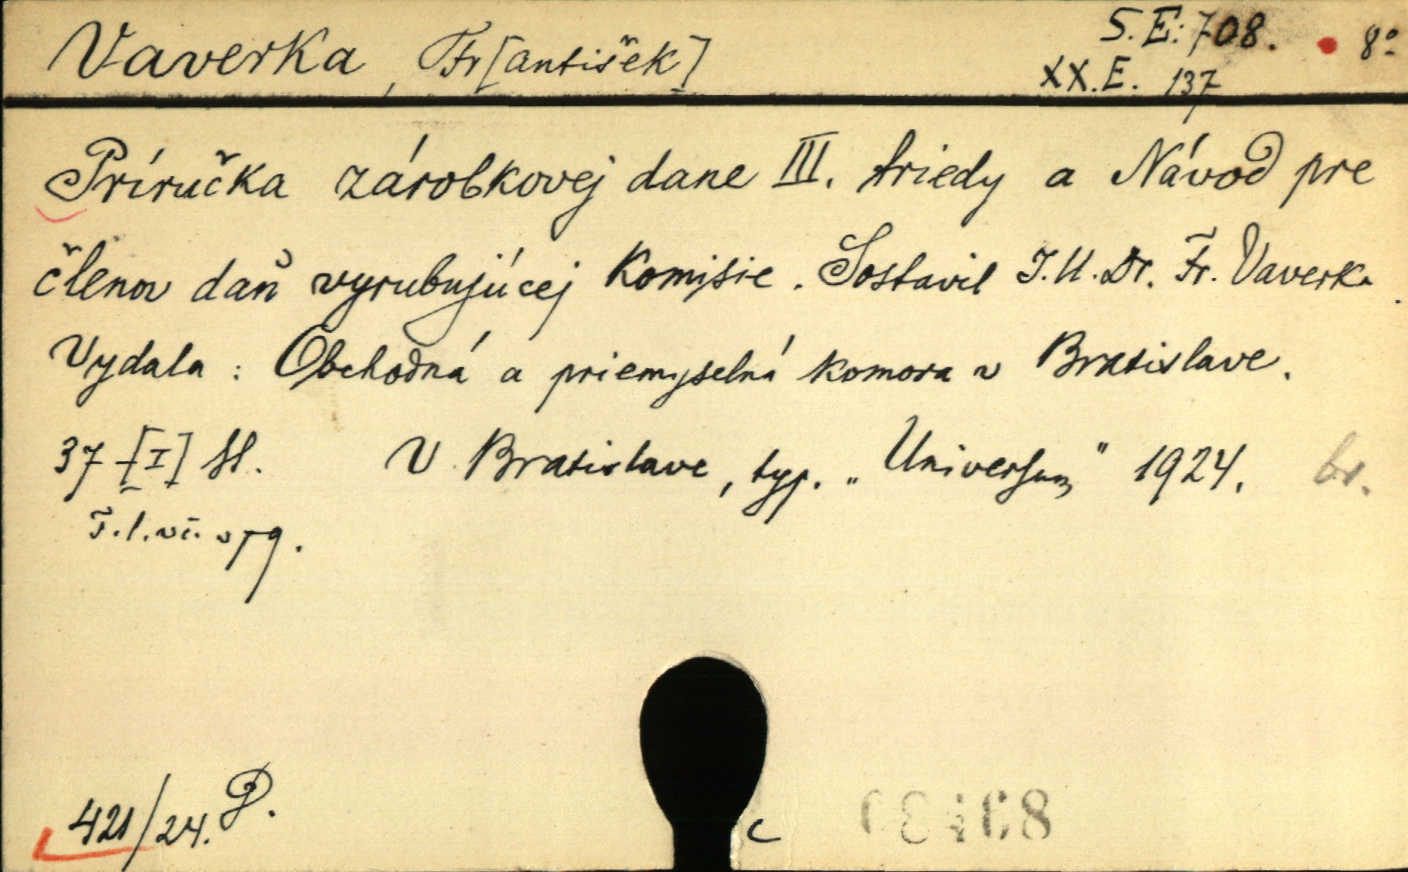 Vaverka, Fr[antišek]
S.E. 708. 8°
XX.E. 137
Príručka zárobkovej dane III. triedy a Návod pre
členov daň vyrubujúcej komisie. Sostavil J.U.Dr. Fr. Vaverka.
Vydala: Obchodná a priemyselná komora v Bratislave.
37-[I] st. V Bratislave, typ. „Universum" 1924. br.
421/24. P.
c